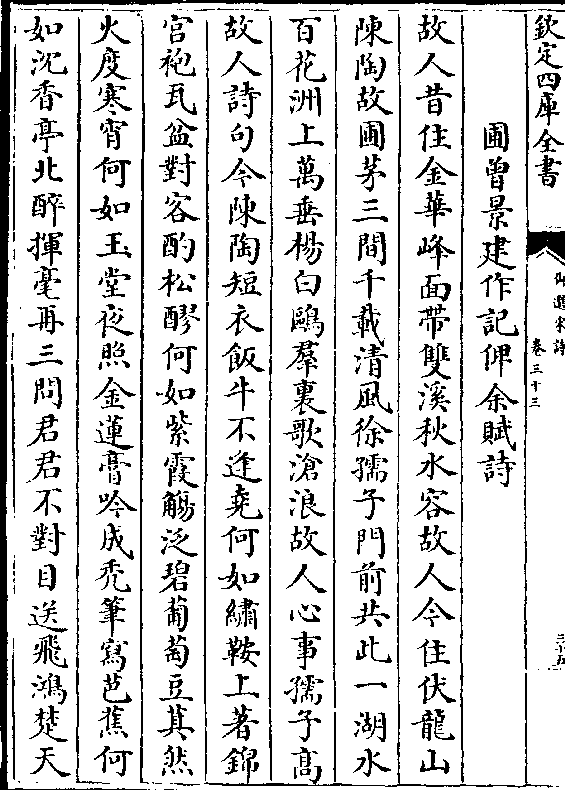 欽定四庫全書
御選宋詩
卷三十三
圃曾景建作記俾余賦詩
故人昔住金華峰面帶雙溪秋水容故人今住伏龍山
陳陶故圃茅三間千載清風徐孺子門前共此一湖水
百花洲上萬垂楊白鷗羣裏歌滄浪故人心事孺子高
故人詩句今陳陶短衣飯牛不逢堯何如繡鞍上著錦
宫袍瓦盆對客酌松醪何如紫霞觴泛碧葡萄豆萁然
火度寒宵何如玉堂夜照金蓮膏吟成禿筆寫芭蕉何
如沈香亭北醉揮毫再三問君君不對目送飛鴻楚天